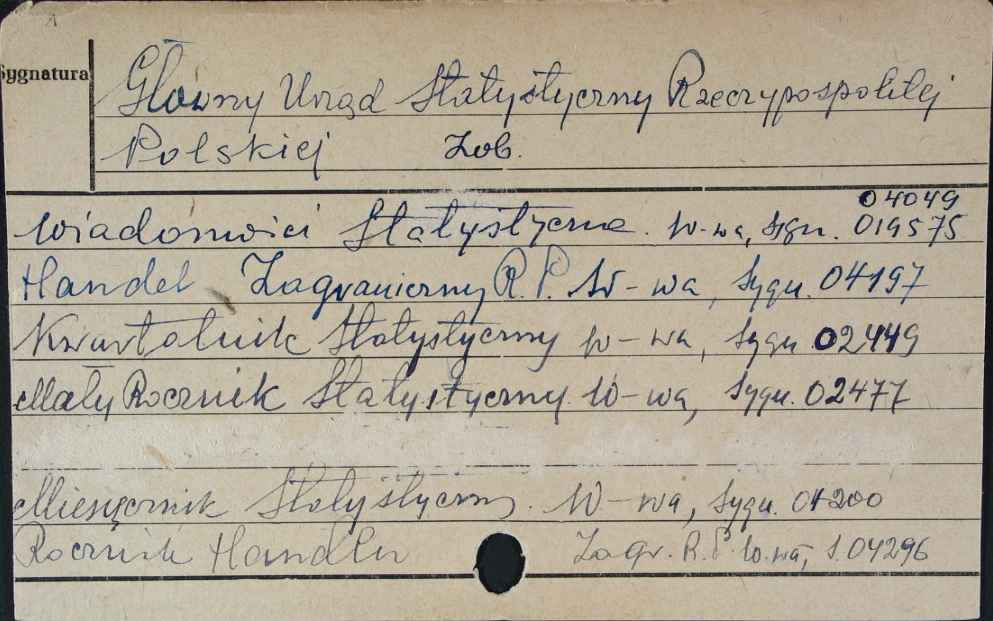 Sygnatura
Główny Urząd Statystyczny Rzeczypospolitej
Polskiej Zob.
04049
Wiadomości Statystyczne. W-wa, Sygn. 019575
Handel Zagraniczny R.P. W-wa, Sygn. 04197
Kwartalnik Statystyczny W-wa, Sygn. 02449
Mały Rocznik Statystyczny. W-wa, Sygn. 02477
Miesięcznik Statystyczny. W-wa, Sygn. 04200
Rocznik Handlu Zagr. R.P. W-wa, S.04296